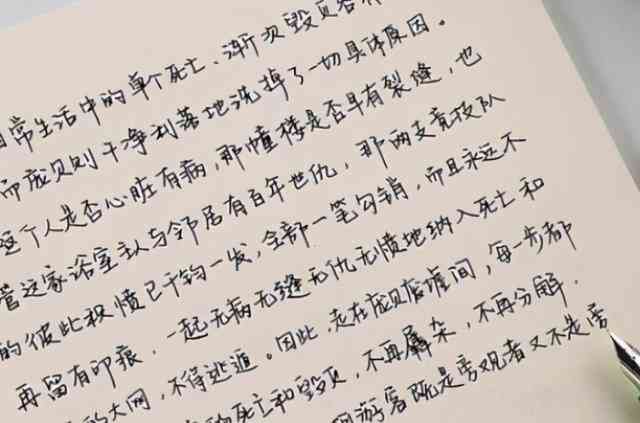 日常生活中的单个死亡、渐次毁损各有
而庞贝则干净利落地洗掉了一切具体原因。
这个人是否心脏有病,那幢楼是否早有裂缝,也
管这家浴室主人与邻居有百年世仇,那两支竞技队
的彼此积愤已千钧一发,全部一笔勾销,而且永远不
再留有印痕,一起无病无缝无仇无愤地纳入死亡和
的大网,不得逃遁。因此,走在庞贝废墟间,每一步都
的死亡和毁损,不再羼杂,不再分解.
游客既是旁观者又不是旁